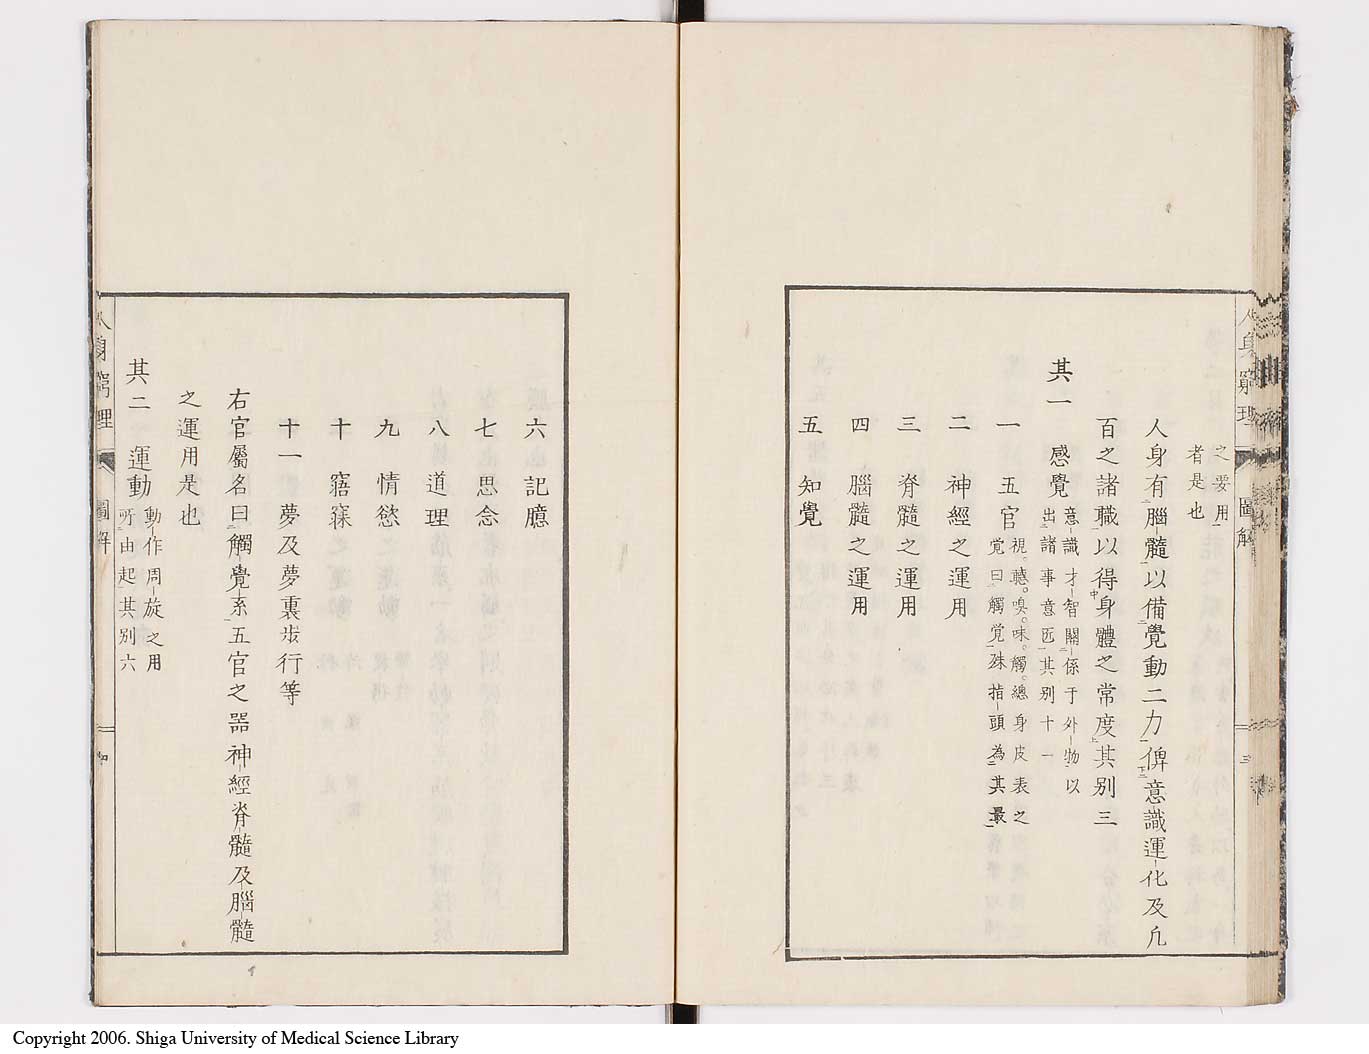 人身窮理
圖解
三
之要用
者是也
人身有腦髓以備覺動二力俾意識運化及凢
百之諸職以得身體之常度其別三
其一
感覺
意識才智關係于外物以
出諸事意匹其別十一
一 五官
視。聽。嗅。味。觸。總身皮表之
覚曰觸覚殊指頭為其最
二 神經之運用
三 脊髓之運用
四 腦髓之運用
五 知覺
六 記臆
七 思念
八 道理
九 情慾
十 寤寐
十一 夢及夢裏步行等
右官屬名曰觸覺系五官之器神經脊髓及腦髓
之運用是也
其二 運動
動作周旋之用
所由起其別六
人身窮理
圖解
Copyright 2006. Shiga University of Medical Science Library